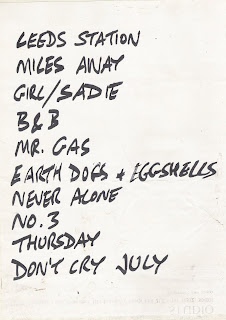 LEEDS STATION
MILES AWAY
GIRL/SADIE
B&B
MR. GAS
EARTH DOGS & EGGSHELLS
NEVER ALONE
NO. 3
THURSDAY
DON'T CRY JULY